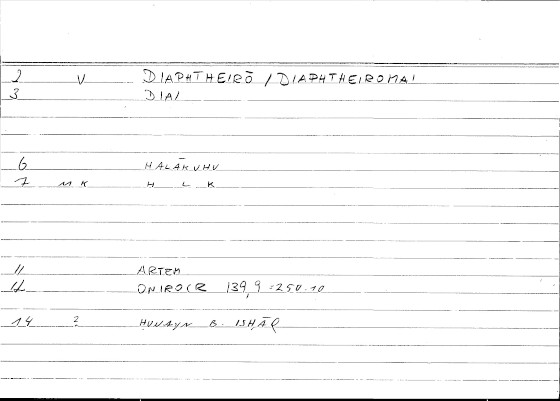 2 V DIAPHTHEIRŌ / DIAPHTHEIROMAI
3 DIAI
6 HALĀKUHU
7 MK H L K
11 ARTEM
12 ONIROCR 139,9 = 250.10
14 ? HUNAYN B. ISḤĀQ